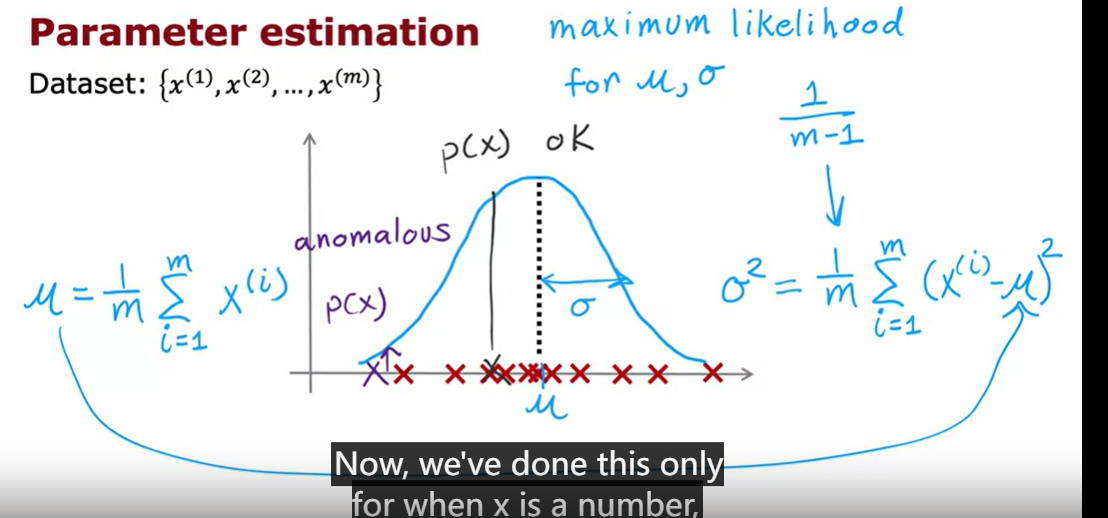 Parameter estimation
Dataset: {x⁽¹⁾, x⁽²⁾, ..., x⁽ᵐ⁾}
maximum likelihood
for μ, σ
1/(m-1)
p(x) ok
anomalous
p(x)
μ = 1/m Σ_{i=1}^{m} x⁽ⁱ⁾
σ
σ² = 1/m Σ_{i=1}^{m} (x⁽ⁱ⁾-μ)²
μ
Now, we've done this only
for when x is a number,